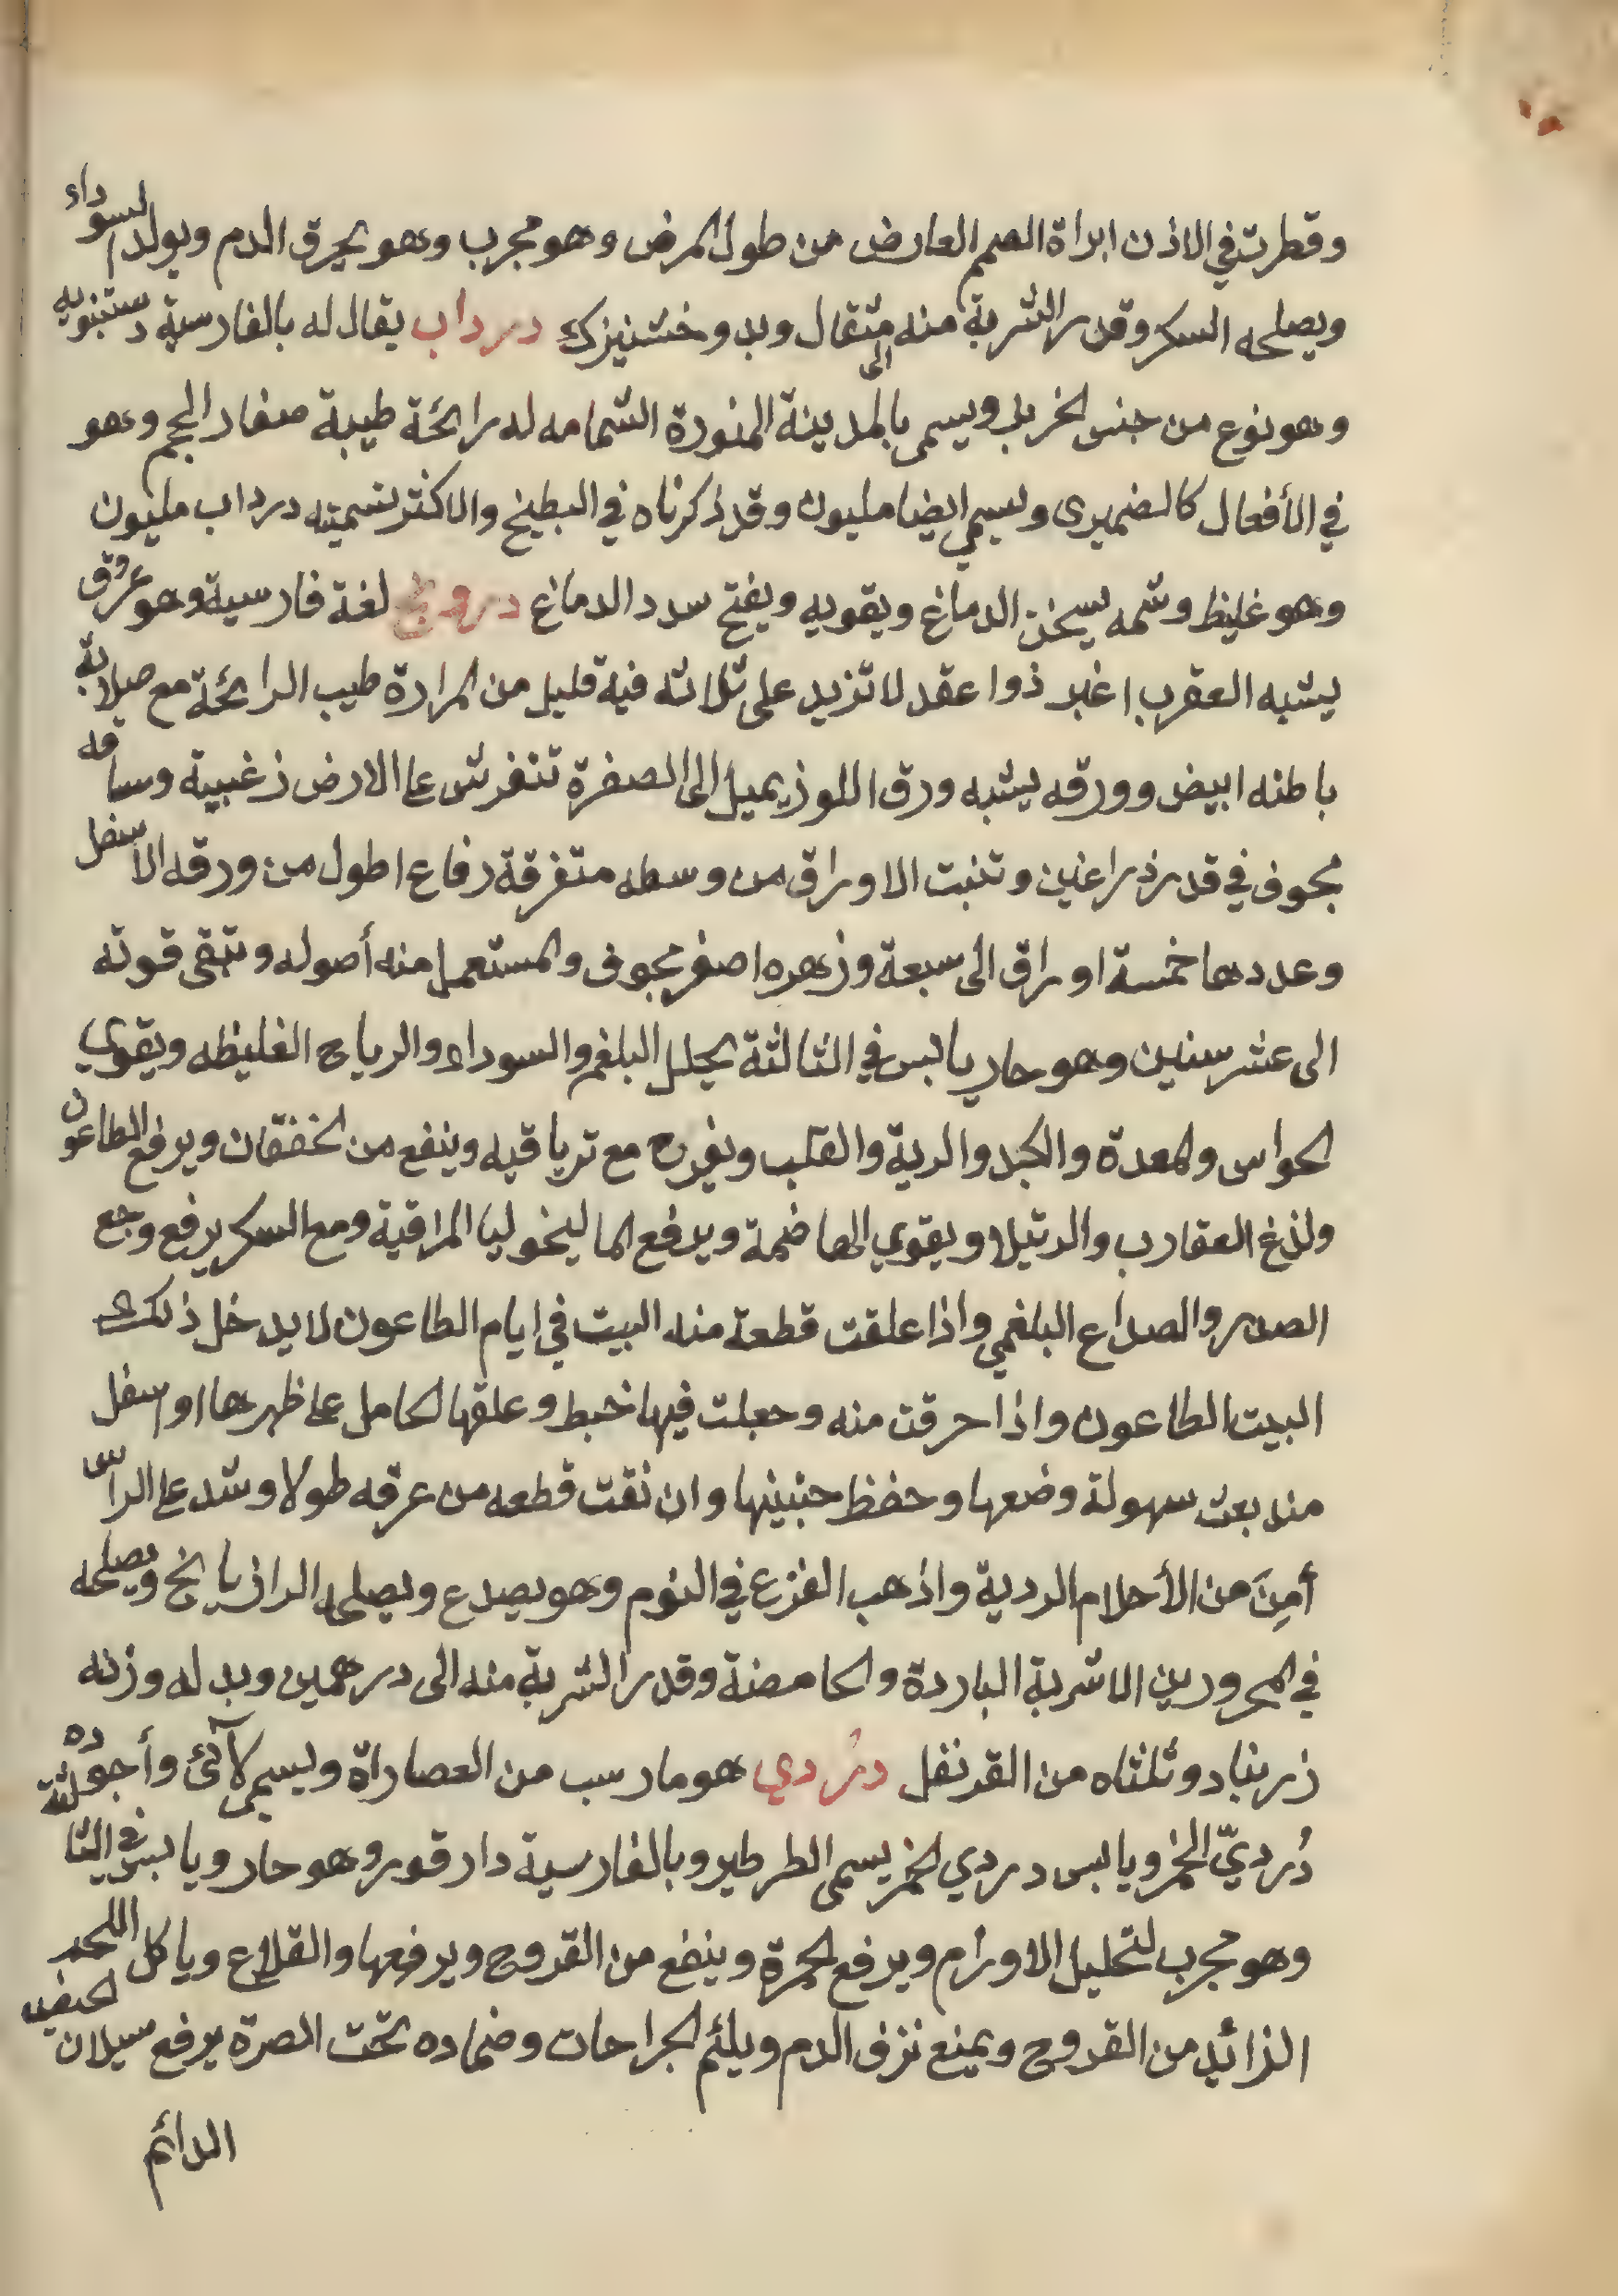 وقطرت في الاذن ابراة الصمم العارض من طول المرض وهو مجرب وهو يحرق الدم ويولد السوداء
ويصلحه السكر وقدر الشربة منه الى مثقال وبدو خشنيزك درداب يقال له بالفارسية دستنبويه
وهو نوع من جنس الخربز ويسمى بالمدينة المنورة الشمامه له رائحة طيبة صغار الحجم وهو
في الأفعال كالضميرى ويسمي ايضا مليون وقد ذكرناه في البطيخ والاكثر تسميته درداب مليون
وهو غليظ وشمه يسخن الدماغ ويقويه ويفتح سدد الدماغ درونج لغة فارسية وهو عروق
يشبه العقرب اغبر ذوا عقد لا تزيد على ثلاثه فيه قليل من المرارة طيب الرائحة مع صلابة
باطنه ابيض وورقه يشبه ورق اللوز يميل الى الصفرة تنفرش على الارض زغبية وساقه
مجوف في قدر ذراعين وتنبت الاوراق من وسطه متفرقة رفاع اطول من ورقه الاسفل
وعددها خمسة اوراق الى سبعة وزهره اصفر مجوف والمستعمل منه أصوله وتبقى قوته
الى عشر سنين وهو حار يابس في الثالثة يحلل البلغم والسوداء والرياح الغليظه ويقوي
الحواس والمعدة والكبد والرية والقلب ويفرح مع ترياقيه وينفع من الخفقان ويرفع الطاعون
ولذغ العقارب والرتيلا ويقوي الهاضمة ويدفع الماليخوليا المراقية ومع السكر يرفع وجع
الصدر والصداع البلغمي واذا علقت قطعة منه البيت في ايام الطاعون لا يدخل ذلك
البيت الطاعون واذا حرقت منه وجعلت فيها خبط وعلقها الحامل على ظهرها او اسفل
منه بعث سهولة وضعها وحفظ جنينها وان نقت قطعه من عرقه طولا وشد على الراس
أمِنَ من الأحلام الردية واذهب الفزع في النوم وهو يصدع ويصلحه الرازيانج ويصلحه
في المحرورين الاشربة الباردة والحامضة وقدر الشربة منه الى درهمين وبدله وزنه
زرنباد وثلثاه من القرنفل دُردي هو ما رسب من العصاراة ويسمى لآلئ وأجوده
دُرديّ الخمر ويابس دردي الخمر يسمى الطرطير وبالفارسية دارقور وهو حار ويابس في الثالثة
وهو مجرب لتحليل الاورام ويرفع الحمرة وينفع من القروح ويرفعها والقلاع وياكل اللحم
الزائد من القروح ويمنع نزف الدم ويلئم الجراحات وضماده تحت الصرة يرفع سيلان الحيض
الدائم